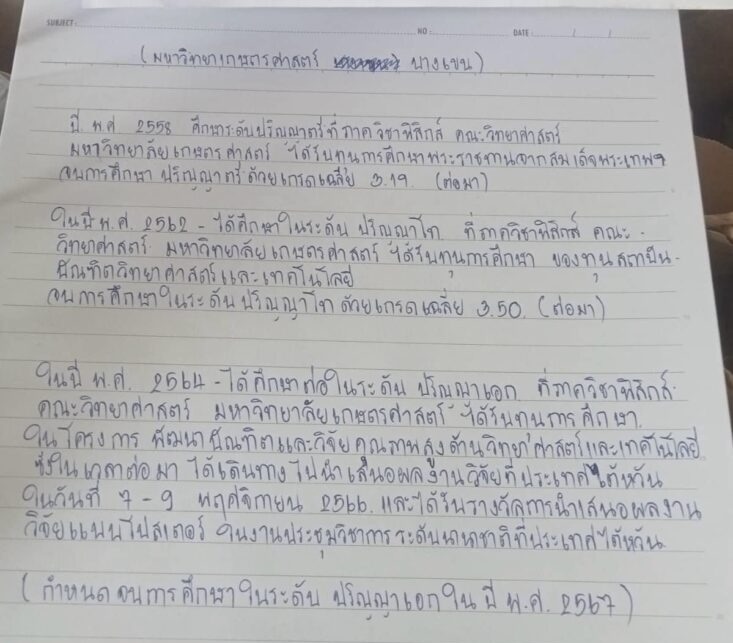 SUBJECT: NO: DATE: / /
(มหาวิทยาเกษตรศาสตร์ บางเขน)
ปี พ.ศ 2558 ศึกษาระดับปริญญาตรีที่ภาควิชาฟิสิกส์ คณะวิทยาศาสตร์
มหาวิทยาลัยเกษตรศาสตร์ ได้รับทุนการศึกษาพระราชทานจากสมเด็จพระเทพฯ
จบการศึกษา ปริญญาตรีด้วยเกรดเฉลี่ย 3.19. (ต่อมา)
ในปี พ.ศ. 2562 - ได้ศึกษาในระดับ ปริญญาโท ที่ภาควิชาฟิสิกส์ คณะ
วิทยาศาสตร์ มหาวิทยาลัยเกษตรศาสตร์ ได้รับทุนการศึกษา ของทุนสถาบัน
บัณฑิตวิทยาศาสตร์และเทคโนโลยี
จบการศึกษาในระดับปริญญาโท ด้วยเกรดเฉลี่ย 3.50. (ต่อมา)
ในปี พ.ศ. 2564 - ได้ศึกษาต่อในระดับ ปริญญาเอก ที่ภาควิชาฟิสิกส์
คณะวิทยาศาสตร์ มหาวิทยาลัยเกษตรศาสตร์ ได้รับทุนการศึกษา
ในโครงการ พัฒนาบัณฑิตและวิจัยคุณภาพสูงด้านวิทยาศาสตร์และเทคโนโลยี
ซึ่งในเวลาต่อมา ได้เดินทางไปนำเสนอผลงานวิจัยที่ประเทศไต้หวัน
ในวันที่ 7 - 9 พฤศจิกายน 2566. และได้รับรางวัลการนำเสนอผลงาน
วิจัยแบบโปสเตอร์ ในงานประชุมวิชาการระดับนานาชาติที่ประเทศไต้หวัน
(กำหนดจบการศึกษาในระดับ ปริญญาเอกในปี พ.ศ. 2567)